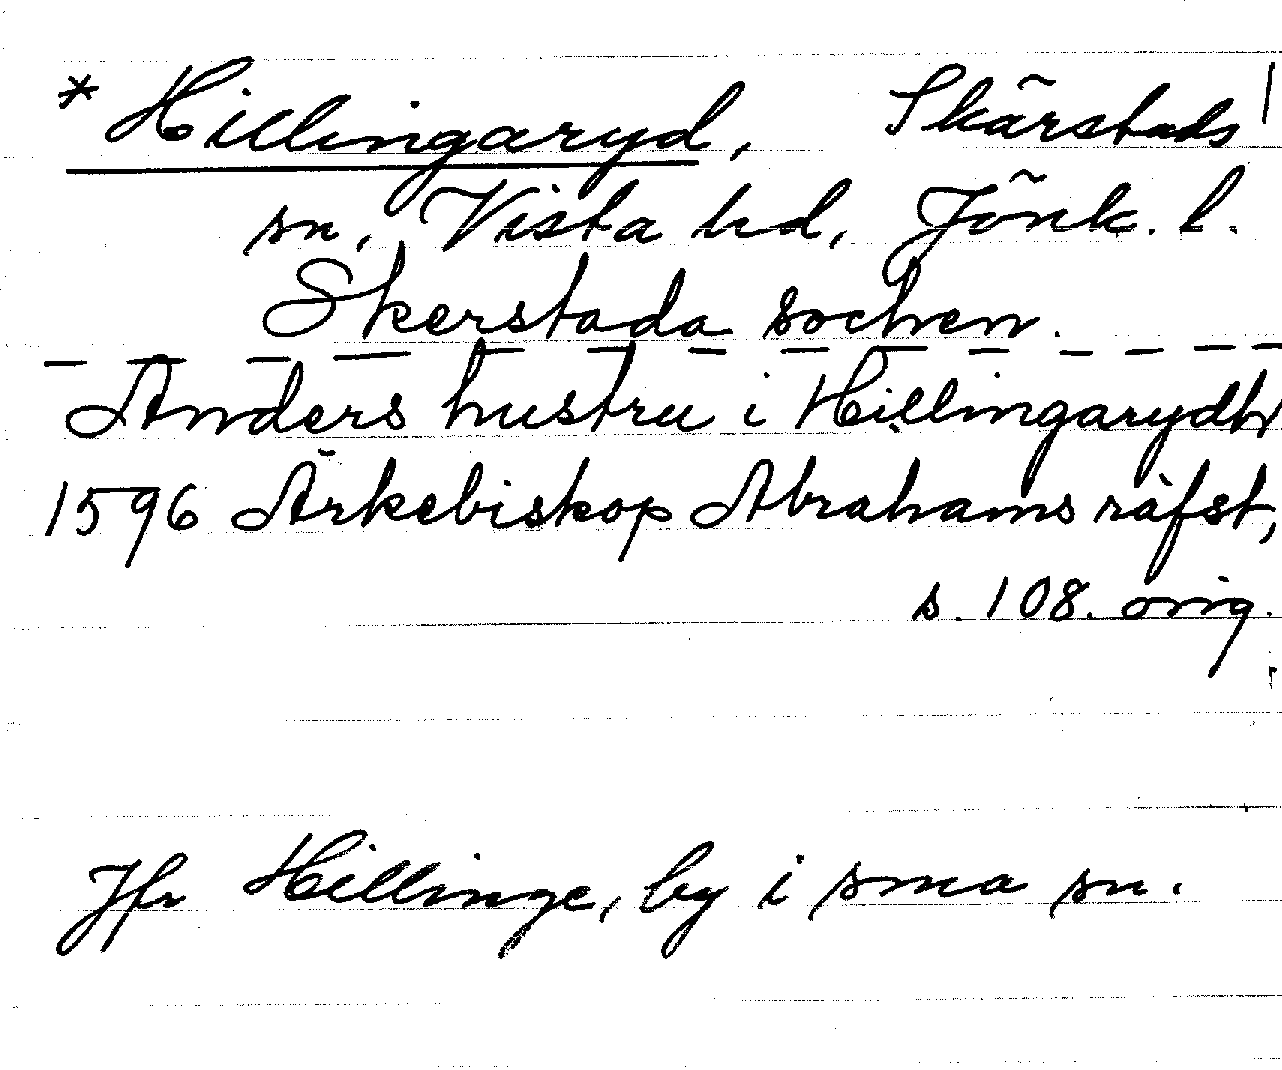 * Hillingaryd, Skärstads
sn, Vista hd, Jönk. l.
Skerstada sochen.
— — — — — — — — — — — — — —
Anders hustru i Hillingarydh
1596 Ärkebiskop Abrahams räfst,
s. 108. orig.
Jfr Hillinge, by i sma sn.